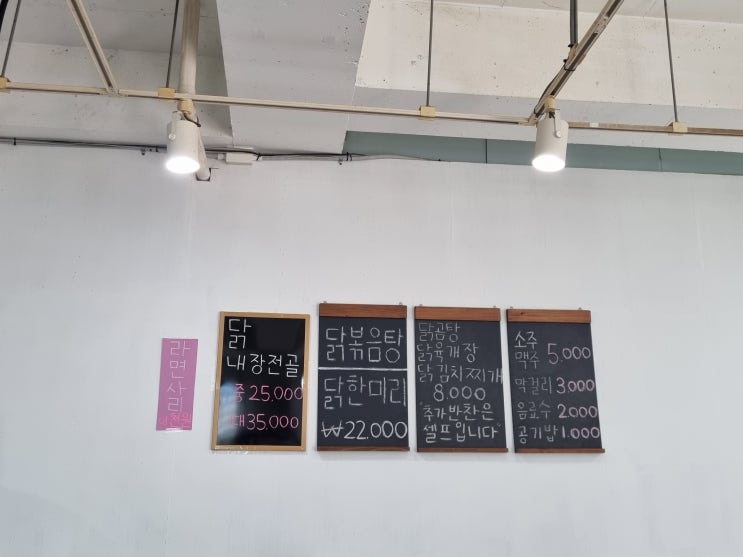 라
면
사
리
이천원
닭
내장전골
중 25.000
대 35.000
닭볶음탕
닭한마리
₩22.000
닭곰탕
닭육개장
닭김치찌개
8.000
"추가반찬은
셀프입니다"
소주
맥주 5.000
막걸리 3.000
음료수 2.000
공기밥 1.000